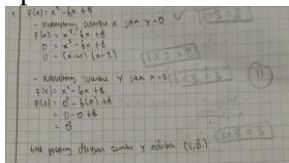 1. F(x) = x² - 6x + 8
- memotong sumbu x jika y = 0
F(x) = x² - 6x + 8
0 = x² - 6x + 8
0 = (x-4) (x-2)
- memotong sumbu y jika x = 0
F(x) = x² - 6x + 8
F(0) = 0² - 6(0) + 8
= 0 - 0 + 8
= 8
titik potong dengan sumbu y adalah (0,8)